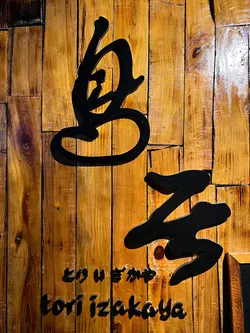 鳥
云
とりいざかや
tori izakaya